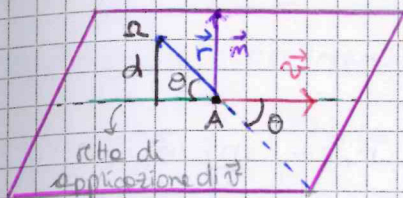 Ω
r⃗ m⃗
d
θ v⃗
A θ
retta di
applicazione di v⃗